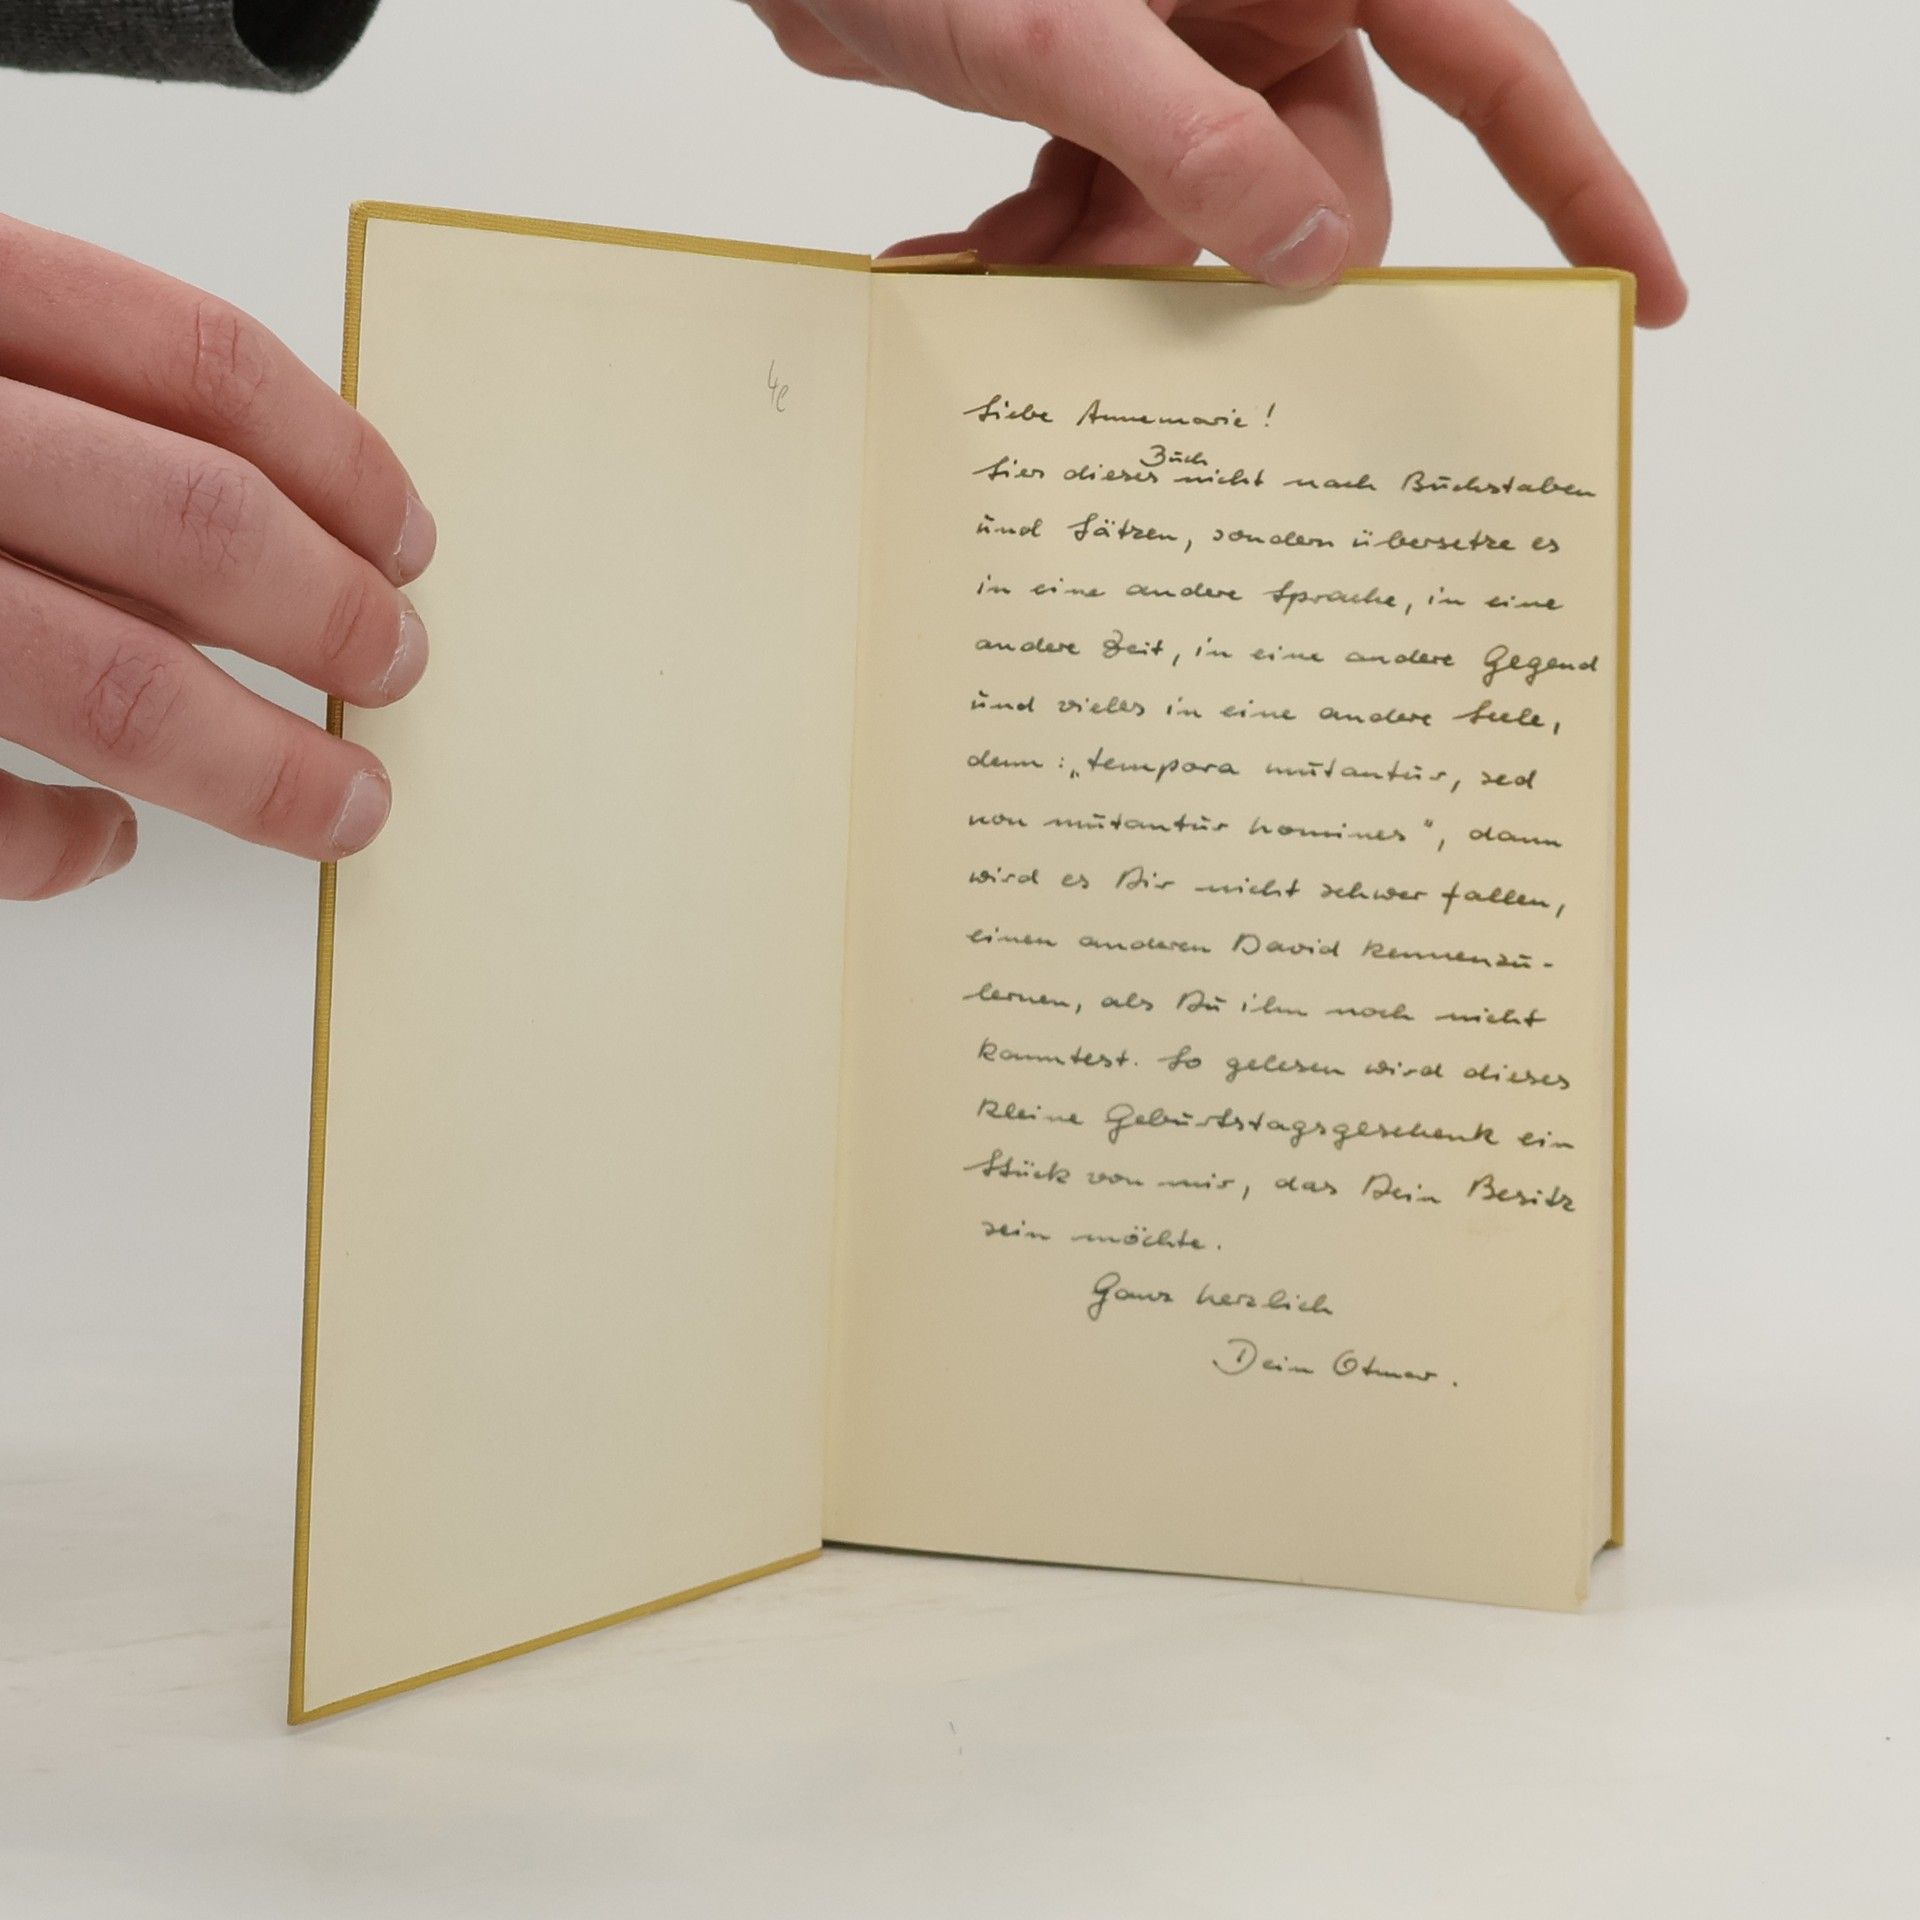 4e
Liebe Annemarie!
Buch
Lies dieses nicht nach Buchstaben
und Sätzen, sondern übersetze es
in eine andere Sprache, in eine
andere Zeit, in eine andere Gegend
und vieles in eine andere Seele,
denn: „tempora mutantur, sed
non mutantur homines", dann
wird es Dir nicht schwer fallen,
einen anderen David kennenzu-
lernen, als Du ihn noch nicht
kanntest. So gelesen wird dieses
kleine Geburtstagsgeschenk ein
Stück von mir, das Dein Besitz
sein möchte.
Ganz herzlich
Dein Otmar.